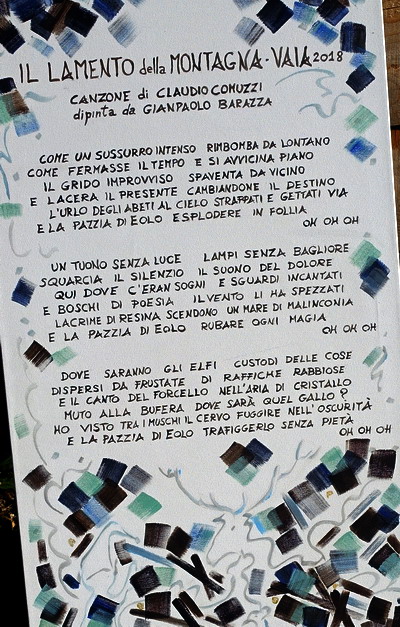 IL LAMENTO della MONTAGNA - VAIA 2018
CANZONE di CLAUDIO COMUZZI
dipinta da GIANPAOLO BARAZZA
COME UN SUSSURRO INTENSO RIMBOMBA DA LONTANO
COME FERMASSE IL TEMPO E SI AVVICINA PIANO
IL GRIDO IMPROVVISO SPAVENTA DA VICINO
E LACERA IL PRESENTE CAMBIANDONE IL DESTINO
L'URLO DEGLI ABETI AL CIELO STRAPPATI E GETTATI VIA
E LA PAZZIA DI EOLO ESPLODERE IN FOLLIA
OH OH OH
UN TUONO SENZA LUCE LAMPI SENZA BAGLIORE
SQUARCIA IL SILENZIO IL SUONO DEL DOLORE
QUI DOVE C'ERAN SOGNI E SGUARDI INCANTATI
E BOSCHI DI POESIA IL VENTO LI HA SPEZZATI
LACRIME DI RESINA SCENDONO UN MARE DI MALINCONIA
E LA PAZZIA DI EOLO RUBARE OGNI MAGIA
OH OH OH
DOVE SARANNO GLI ELFI CUSTODI DELLE COSE
DISPERSI DA FRUSTATE DI RAFFICHE RABBIOSE
E IL CANTO DEL FORCELLO NELL'ARIA DI CRISTALLO
MUTO ALLA BUFERA DOVE SARÀ QUEL GALLO?
HO VISTO TRA I MUSCHI IL CERVO FUGGIRE NELL'OSCURITÀ
E LA PAZZIA DI EOLO TRAFIGGERLO SENZA PIETÀ
OH OH OH